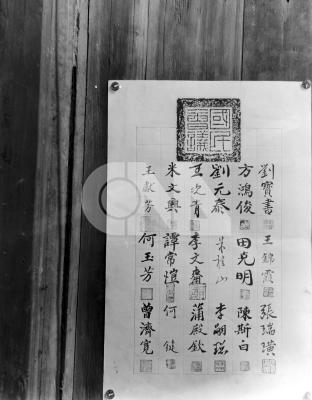 國民會議
劉寶書 王錦霞 張瑞璜
方鴻俊 田克明 陳斯白
劉元泰 朱桂山 李嗣璁
王次青 李文齋 蒲殿欽
米文興 譚常愷 何
王獻芳 何玉芳 曾濟寬